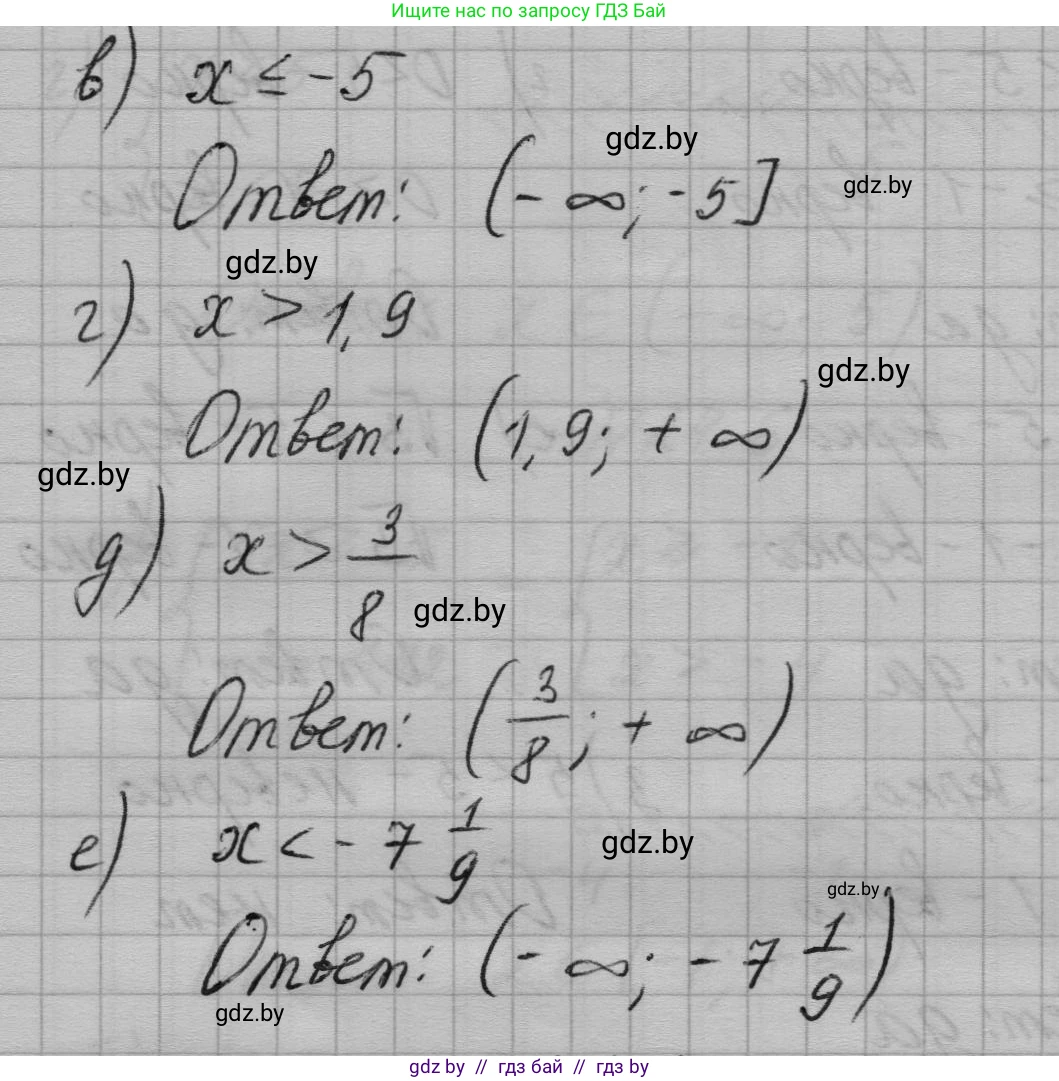 Ищите нас по запросу ГДЗ Бай
в) x ≤ -5
gdz.by
Ответ: (-∞; -5]
gdz.by
gdz.by
г) x > 1,9
gdz.by
Ответ: (1,9; +∞)
gdz.by
д) x > 3/8
gdz.by
Ответ: (3/8; +∞)
е) x < -7 1/9
gdz.by
gdz.by
Ответ: (-∞; -7 1/9)
gdz.by
gdz.by // гдз бай // гдз by